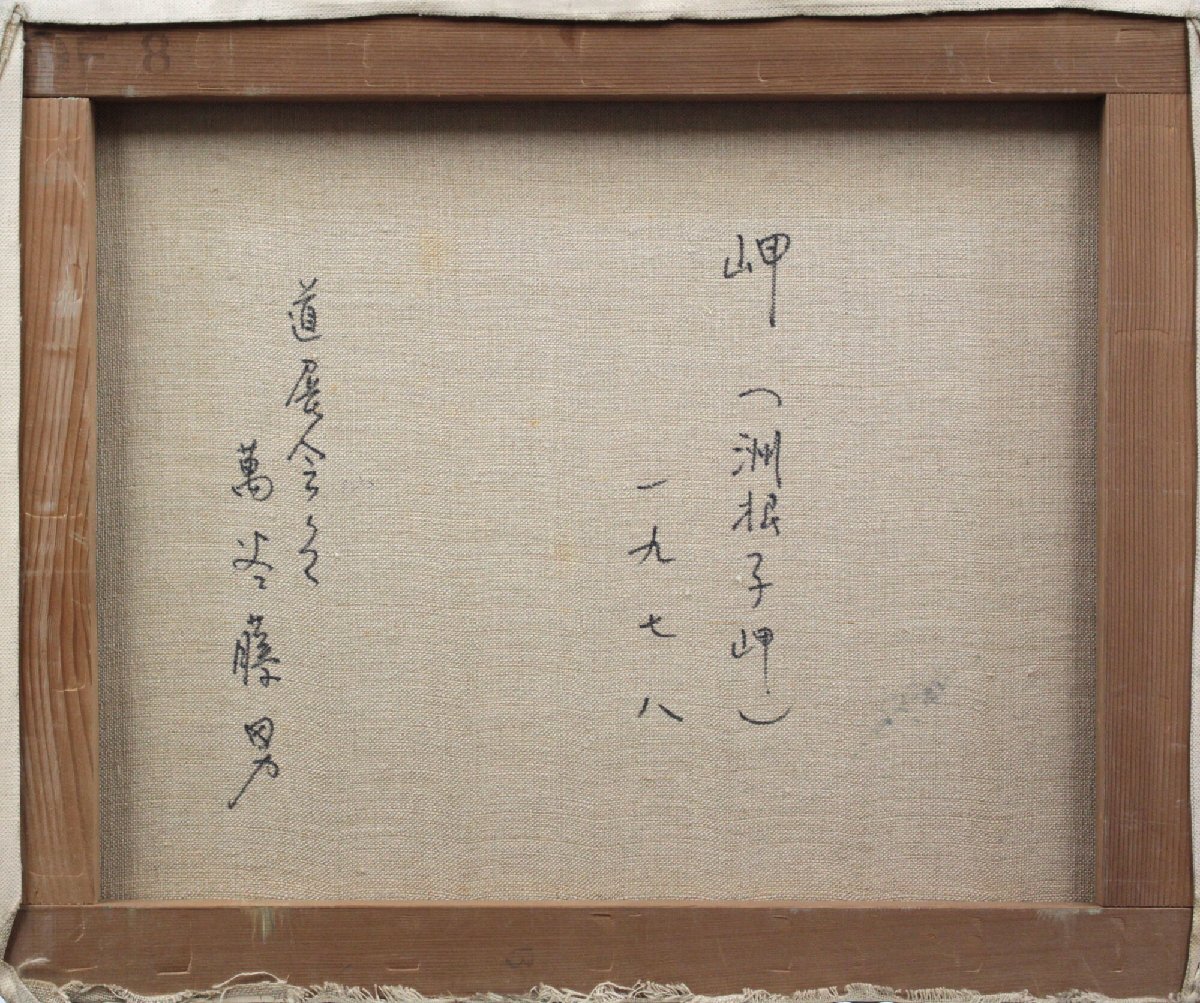 岬
(洲根子岬)
一九七八
道展会友
萬谷藤男
F 8